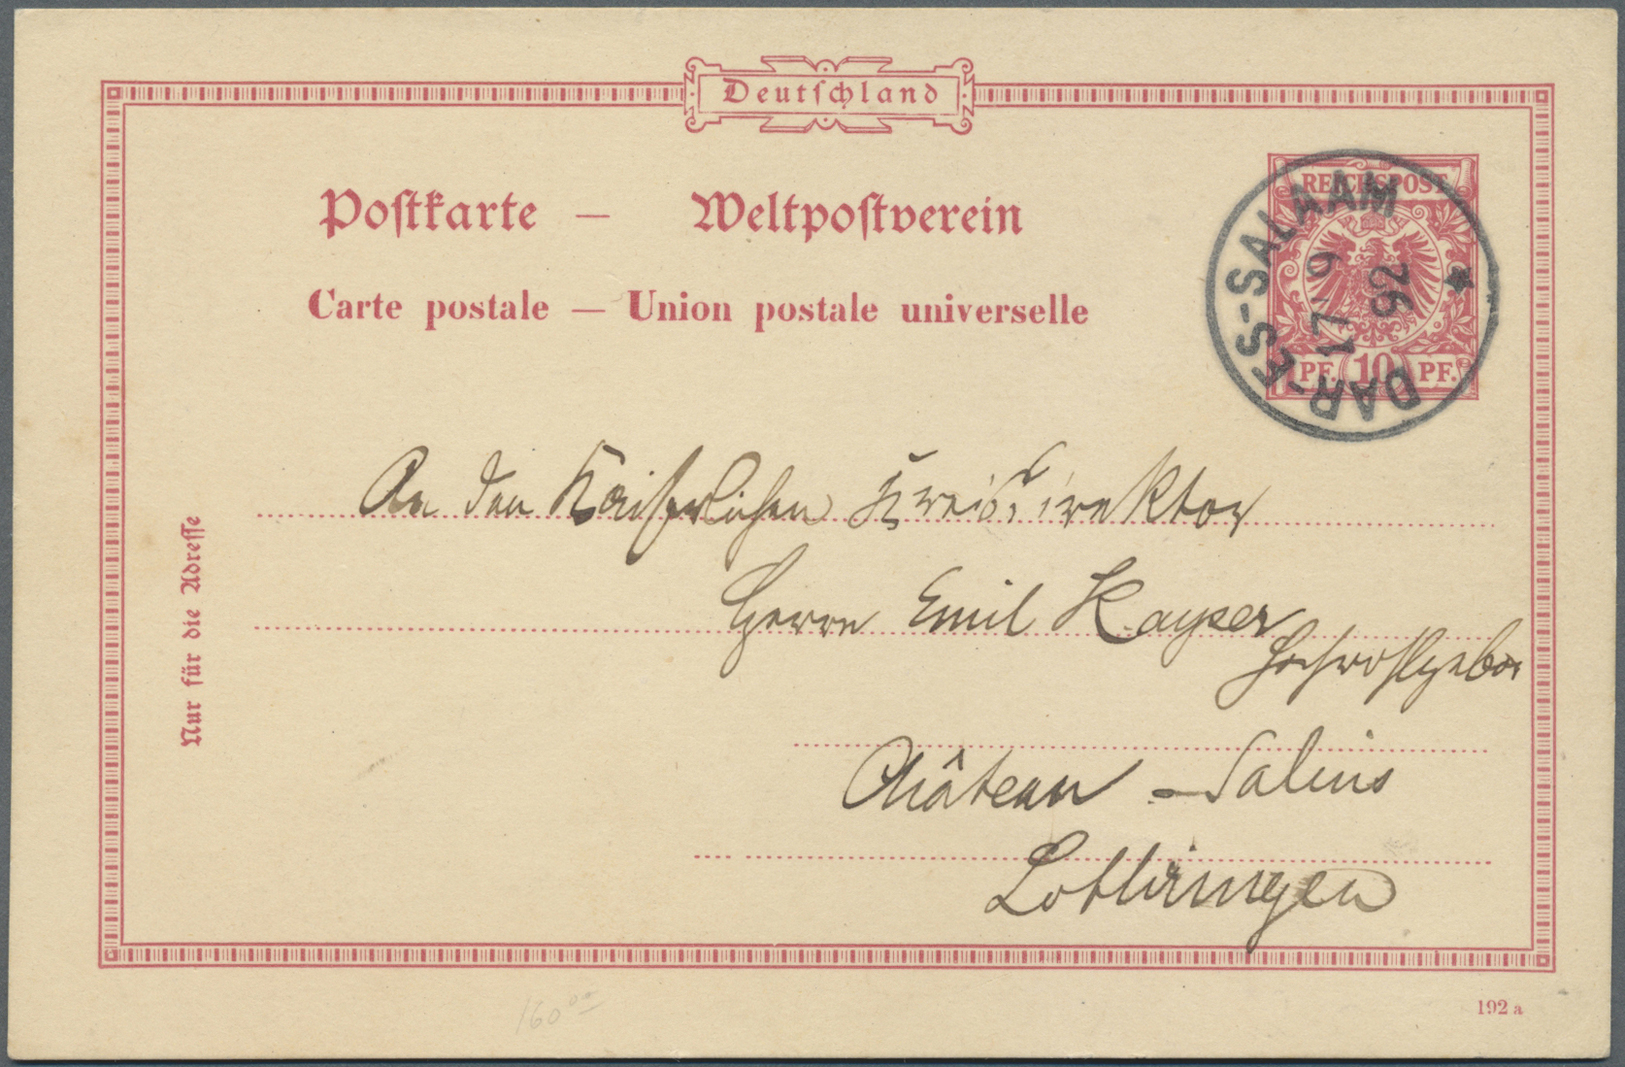 Deutschland
Postkarte — Weltpostverein
Carte postale — Union postale universelle
REICHSPOST
PF. 10 PF.
DAR-ES-SALAAM
17/9
92
Nur für die Adresse
An den Kaiserlichen Kreisdirektor
Herrn Emil Kayser
Hochwohlgebor
Château-Salins
Lothringen
160
192 a